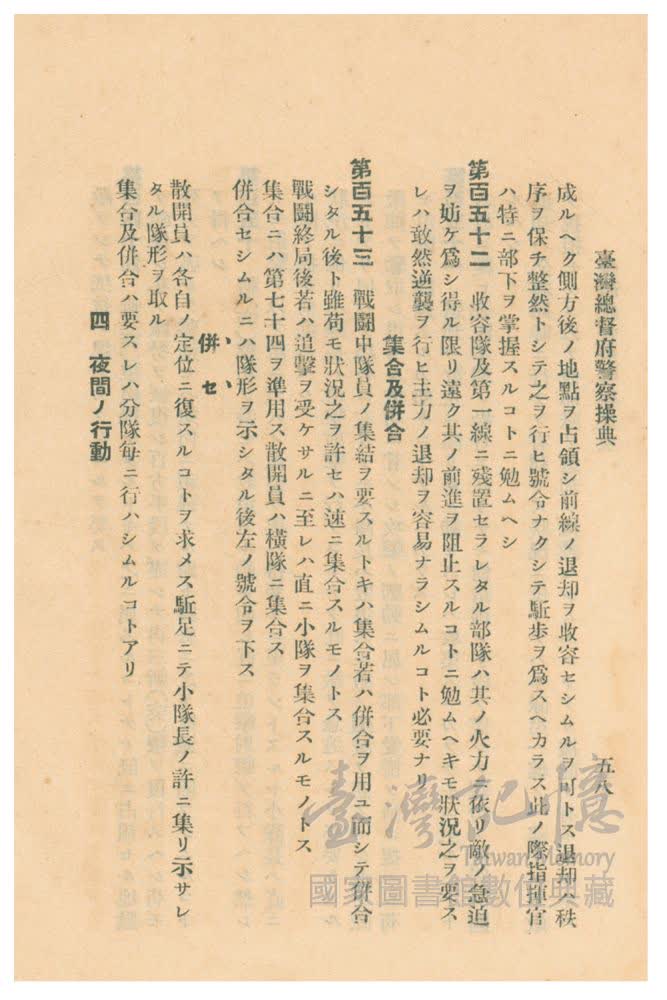 臺灣總督府警察操典
五八
成ルヘク側方後ノ地點ヲ占領シ前線ノ退却ヲ收容セシムルヲ可トス退却ハ秩
序ヲ保チ整然トシテ之ヲ行ヒ號令ナクシテ駈歩ヲ爲スヘカラス此ノ際指揮官
ハ特ニ部下ヲ掌握スルコトニ勉ムヘシ
第百五十二 收容隊及第一線ニ殘置セラレタル部隊ハ其ノ火力ニ依リ敵ノ急迫
ヲ妨ケ爲シ得ル限リ遠ク其ノ前進ヲ阻止スルコトニ勉ムヘキモ狀況之ヲ要ス
レハ敢然逆襲ヲ行ヒ主力ノ退却ヲ容易ナラシムルコト必要ナリ
集合及併合
第百五十三 戰鬪中隊員ノ集結ヲ要スルトキハ集合若ハ併合ヲ用ユ而シテ併合
シタル後ト雖苟モ狀況之ヲ許セハ速ニ集合スルモノトス
戰鬪終局後若ハ追擊ヲ受ケサルニ至レハ直ニ小隊ヲ集合スルモノトス
集合ニハ第七十四ヲ準用ス散開員ハ橫隊ニ集合ス
併合セシムルニハ隊形ヲ示シタル後左ノ號令ヲ下ス
併、セ、
散開員ハ各自ノ定位ニ復スルコトヲ求メス駈足ニテ小隊長ノ許ニ集リ示サレ
タル隊形ヲ取ル
集合及併合ハ要スレハ分隊每ニ行ハシムルコトアリ
四 夜間ノ行動
臺灣記憶
Taiwan Memory
國家圖書館數位典藏